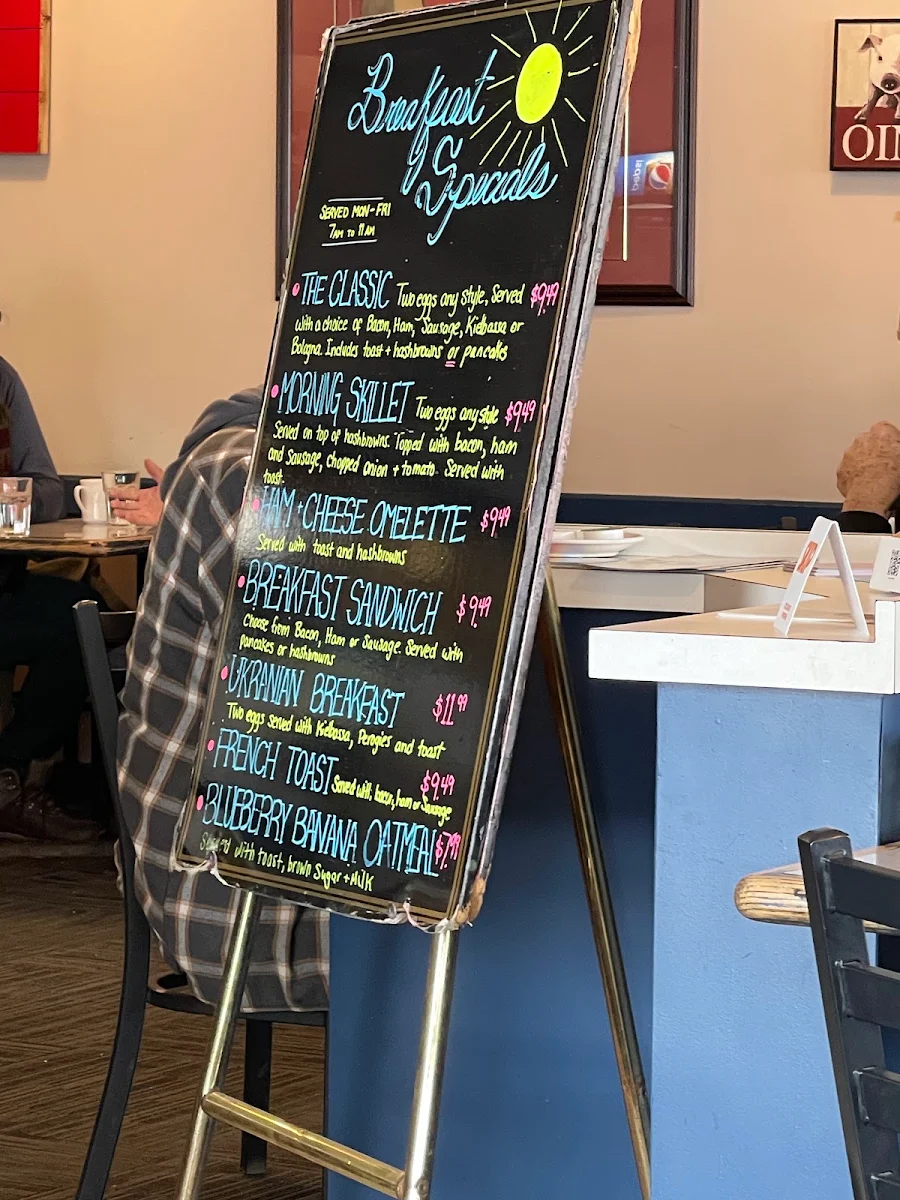 Breakfast
Specials
SERVED MON-FRI
7AM TO 11AM
THE CLASSIC Two eggs any style, Served $9.49
with a choice of Bacon, Ham, Sausage, Kielbassa or
Bologna. Includes toast + hashbrowns or pancakes
MORNING SKILLET Two eggs any style $9.49
Served on top of hashbrowns. Topped with bacon, ham
and Sausage, chopped onion + tomato. Served with
toast.
HAM + CHEESE OMELETTE $9.49
Served with toast and hashbrowns
BREAKFAST SANDWICH $9.49
Choose from Bacon, Ham or Sausage. Served with
pancakes or hashbrowns
UKRANIAN BREAKFAST $11.99
Two eggs served with Kielbassa, Perogies and toast
FRENCH TOAST Served with bacon, ham or Sausage $9.49
BLUEBERRY BANANA OATMEAL $7.99
Served with toast, brown Sugar + Milk
pepsi
OIN